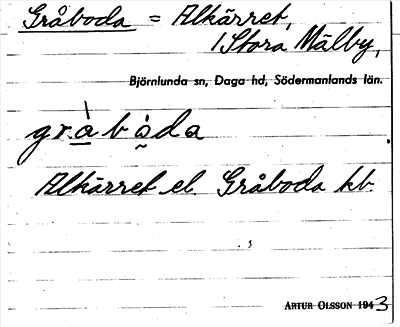 Gråboda = Alkärret,
/Stora Mälby,
Björnlunda sn, Daga hd, Södermanlands län.
gràbòda
Alkärret el. Gråboda kb.
ARTUR OLSSON 1943